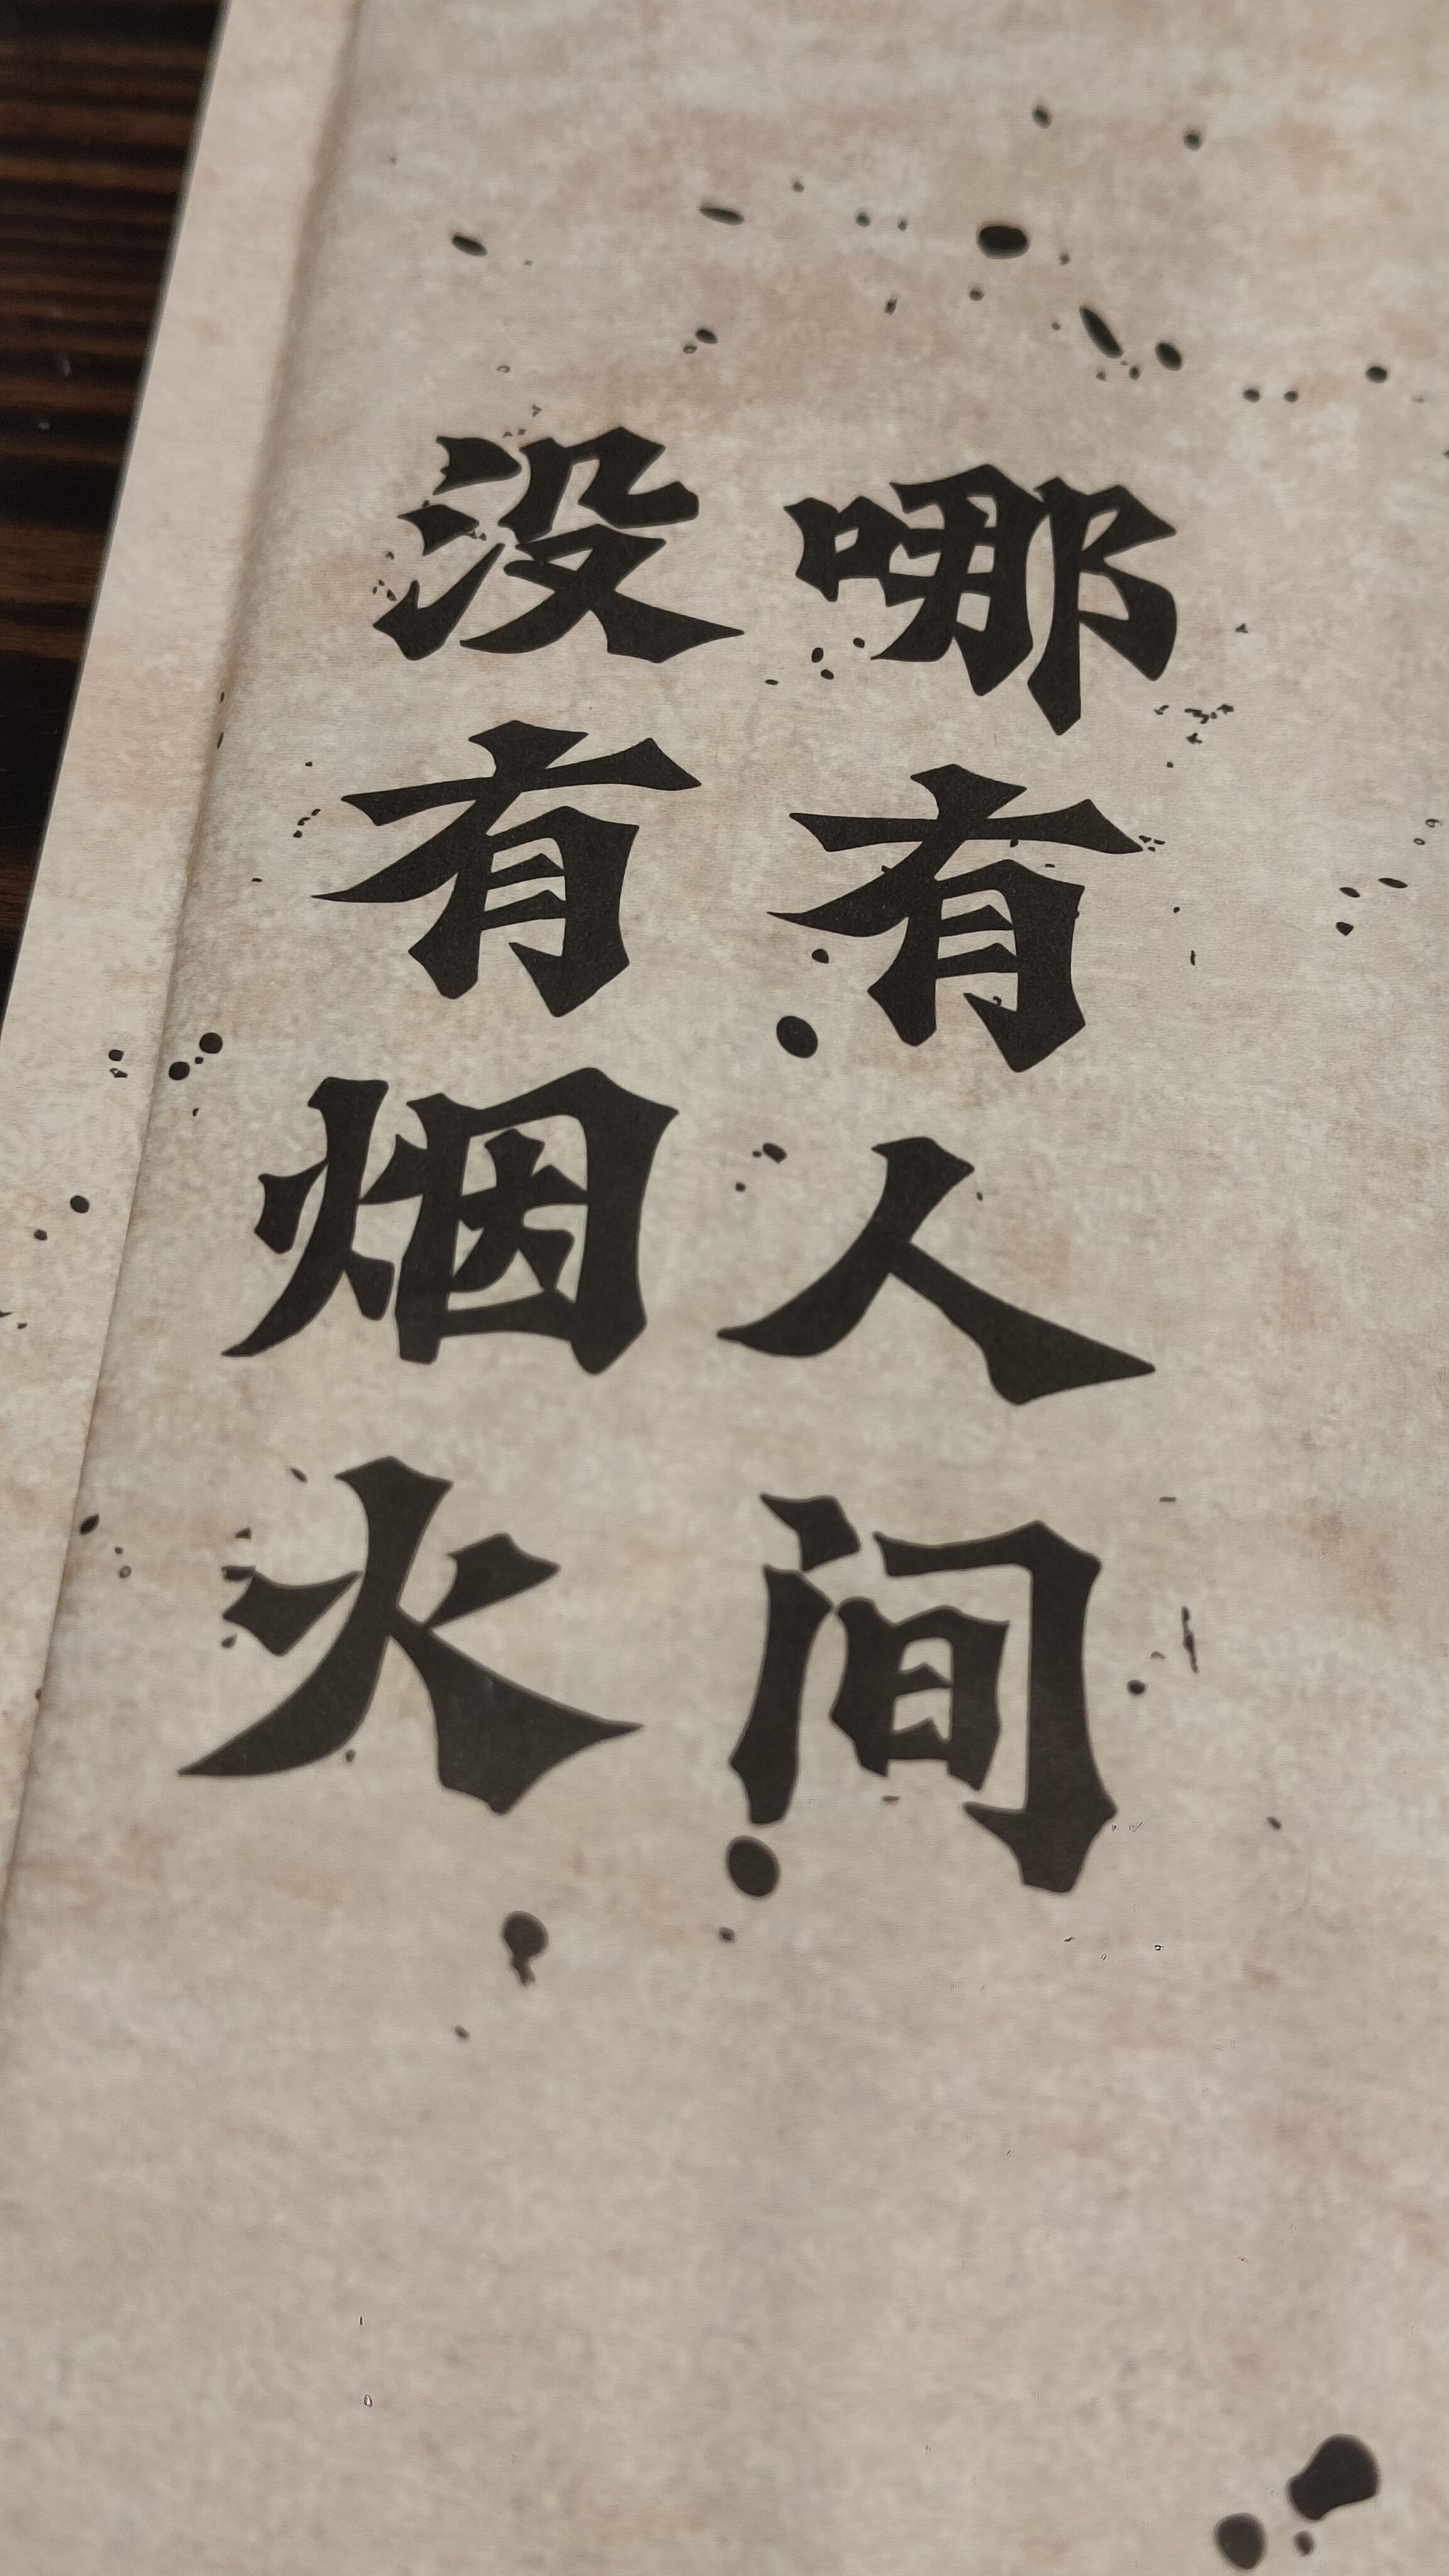 哪有人间
没有烟火